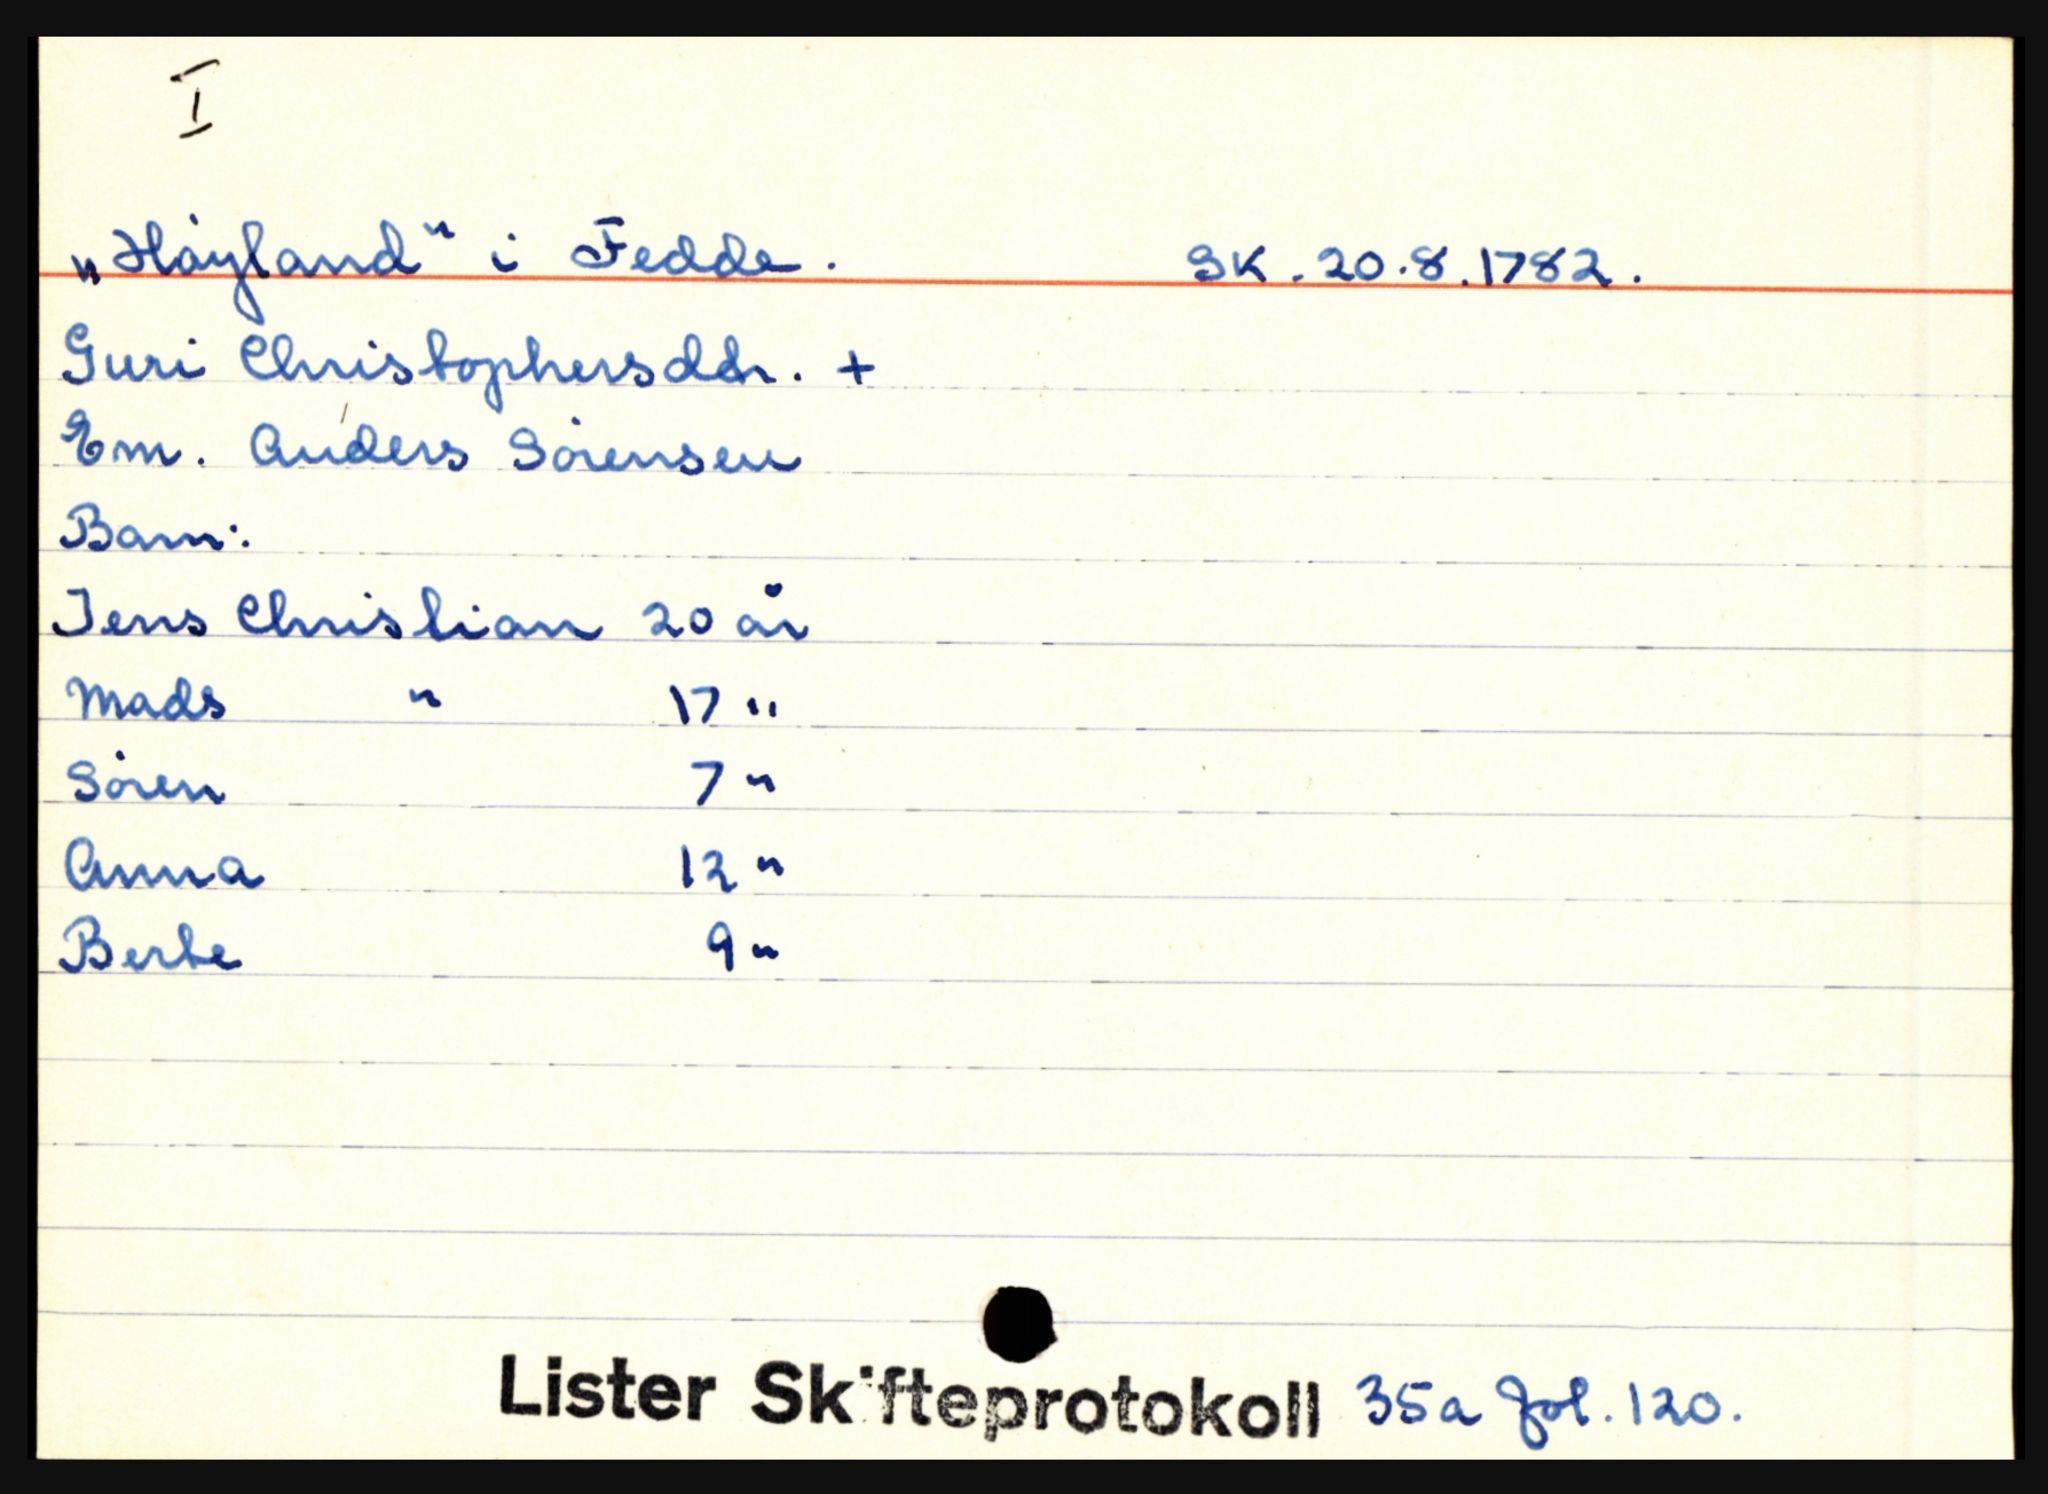 I
„Høyland“ i Fedde. SK. 20.8.1782.
Guri Christophersdtr. +
Em. Anders Sørensen
Barn:
Jens Christian 20 år
Mads " 17 "
Søren 7 "
Anna 12 "
Berte 9 "
Lister Skifteprotokoll 35a fol. 120.